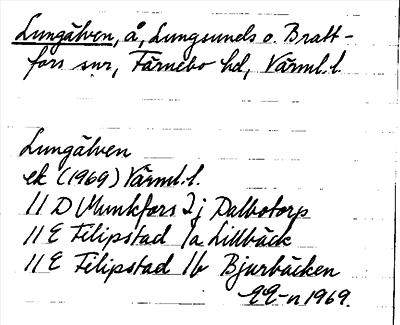 Lungälven, å, Lungsunds o. Bratt-
fors snr, Färnebo hd, Värml. l.
Lungälven
ek (1969) Värml. l.
11 D Munkfors 2j Dalbotorp
11 E Filipstad 1a Lillbäck
11 E Filipstad 1b Bjurbäcken
1969.